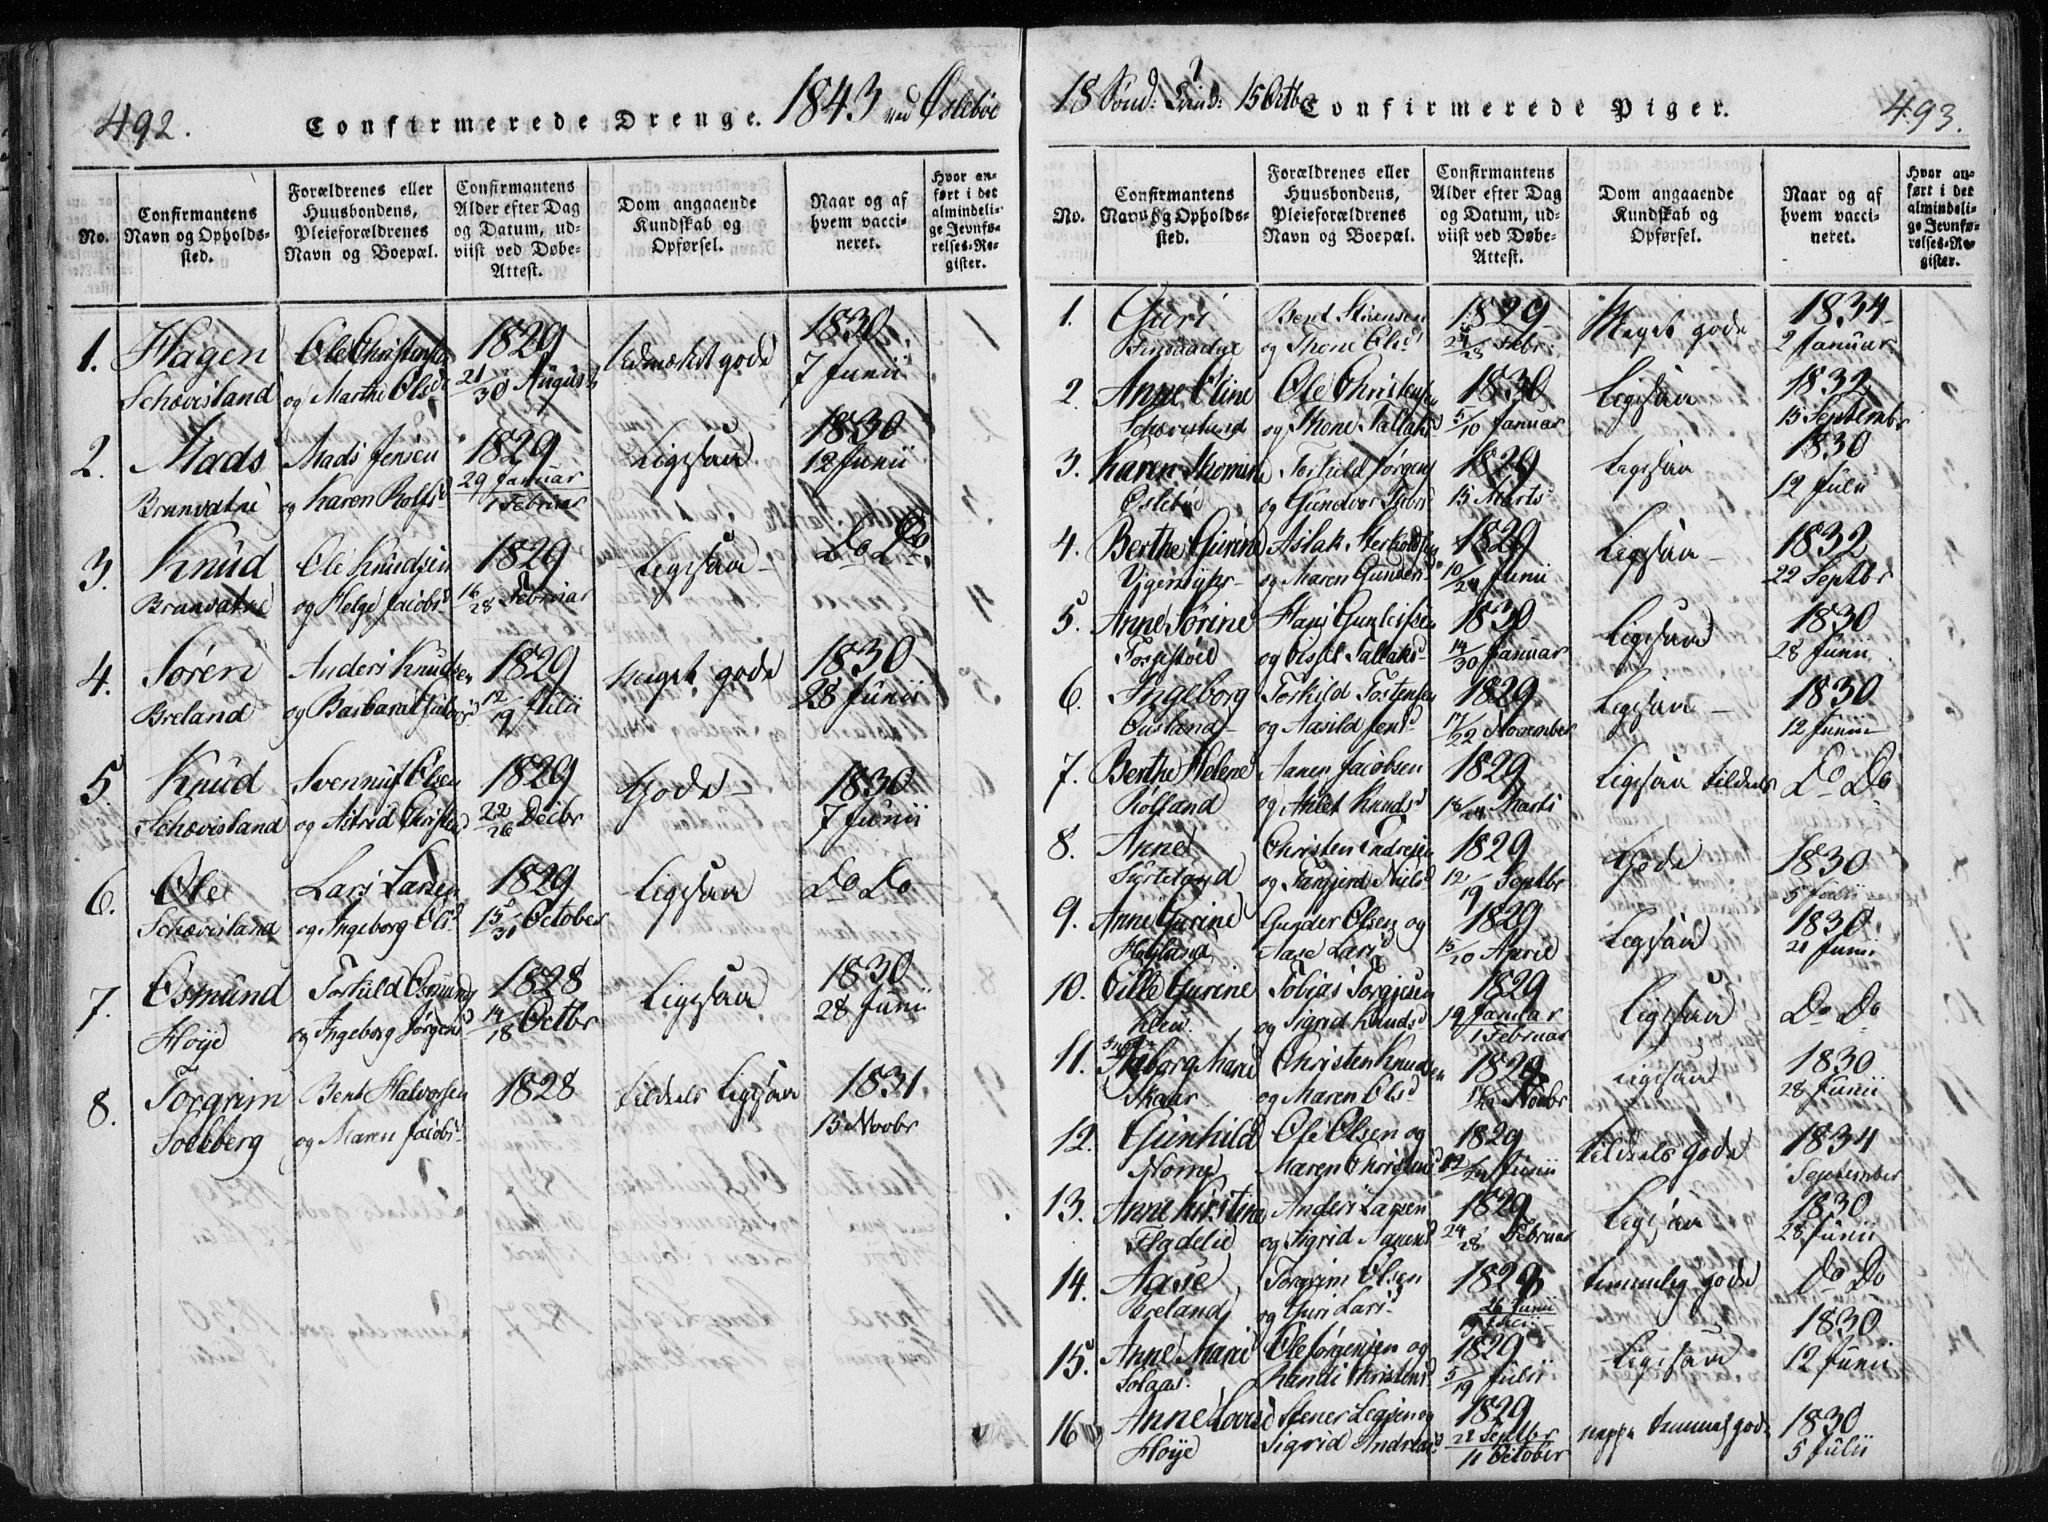 492.
Confirmerede Drenge. 1843 ved Øslebøe
No.
Confirmantens Navn og Opholdssted.
Forældrenes eller Huusbondens, Pleieforældrenes Navn og Boepæl.
Confirmantens Alder efter Dag og Datum, udviist ved Døbe-Attest.
Dom angaaende Kundskab og Opførsel.
Naar og af hvem vaccineret.
Hvor anført i det almindelige Jevnførelses-Register.
1. Hagen Ole Christens 1829 Udmærket gode 1830
Schævisland og Marthe Olsd 21/30 August 7 Junii
2. Mads Mads Jensen 1829 Ligesaa 1830
Brunvatne og Karen Rolfsd 29 Januar 12 Junii
1 Februar
3. Knud Ole Knudsen 1829 Ligesaa Do Do
Brunvatne og Helge Jacobsd 16/28 Februar
4. Søren Anders Knudsen 1829 meget gode 1830
Breland og Barbara 12/19 Julii 28 Junii
5. Knud Svennuf Olsen 1829 Gode 1830
Schævisland og Astrid Christend 22/26 Decbr 7 Junii
6. Ole Lars Larsen 1829 Ligesaa Do Do
Schævisland og Ingeborg Olsd 15/31 October
7. Osmund Torkild Osmunds 1828 Ligesaa 1830
Høye og Ingeborg Jørgensd 14/18 Octbr 28 Junii
8. Torgrim Bent Halvorsen 1828 tildeels Ligesaa 1831
Solberg og Maren Jacobsd 15 Novbr
18 Sønd: Trinit: 15 Octbr Confirmerede Piger. 493.
No.
Confirmantens Navn og Opholdssted.
Forældrenes eller Huusbondens, Pleieforældrenes Navn og Boepæl.
Confirmantens Alder efter Dag og Datum, udviist ved Døbe-Attest.
Dom angaaende Kundskab og Opførsel.
Naar og af hvem vaccineret.
Hvor anført i det almindelige Jevnførelses-Register.
1. Guri Bent 1829 Meget gode 1834
og Thone Olsd Febr. 2 Januar
2. Anne Oline Ole Christensen 1830 Ligesaa 1832
Schævisland og Thone Tallaksd 5/10 Januar 15 Septembr
3. Karen Thomine Torkild Jørgens 1829 Ligesaa 1830
Øslebøe og Gundvor 15 Marts 12 Julii
4. Berthe Gurine Aslak 1829 Ligesaa 1832
og Maren Gundersd 10/24 Junii 22 Septbr
5. Anne Sørine Hans Gunleifsen 1830 Ligesaa 1830
Fosestøel og Sissel Tallaksd 14/30 Januar 28 Junii
6. Ingeborg Torkild Tostensen 1829 Ligesaa 1830
og Aasild Jensd 17/22 November 12 Junii
7. Berthe Helene Aanen Jacobsen 1829 Ligesaa tildeels Do Do
Røiland og Anlet Knudsd Marts
8. Anne Christen Endresen 1829 Gode 1830
og Tarjerd Nielsd 12/19 Septbr 5 Julii
9. Anne Gurine Gunder Olsen og 1829 Ligesaa 1830
Aase Larsd 15/20 April 21 Junii
10. Cille Gurine Tobias Torgjusen 1829 Ligesaa Do Do
og Sigrid Knudsd 19 Januar
1 Februar
11. Ingeborg Marie Christen Knudsen 1829 Ligesaa 1830
Skaar og Maren Olsd Novbr 28 Junii
12. Gunhild Ole Olsen og 1829 tildeels gode 1834
Nome Maren Christensd Junii September
13. Anne Kirstine Anders Larsen 1829 Ligesaa 1830
og Sigrid Aanensd 24/28 Februar 28 Junii
14. Aase Torgrim Olsen 1829 temmelig gode Do Do
Breland og Guri Larsd 26 Junii
15. Anne Marie Ole Jørgensen og 1829 Ligesaa 1830
Solaas Randi Christensd 5/19 Julii 12 Junii
16 Anne Lovise Stener og 1829 neppe temmel gode 1830
Høye Sigrid Andreasd 22 Septbr 5 Julii
11 October